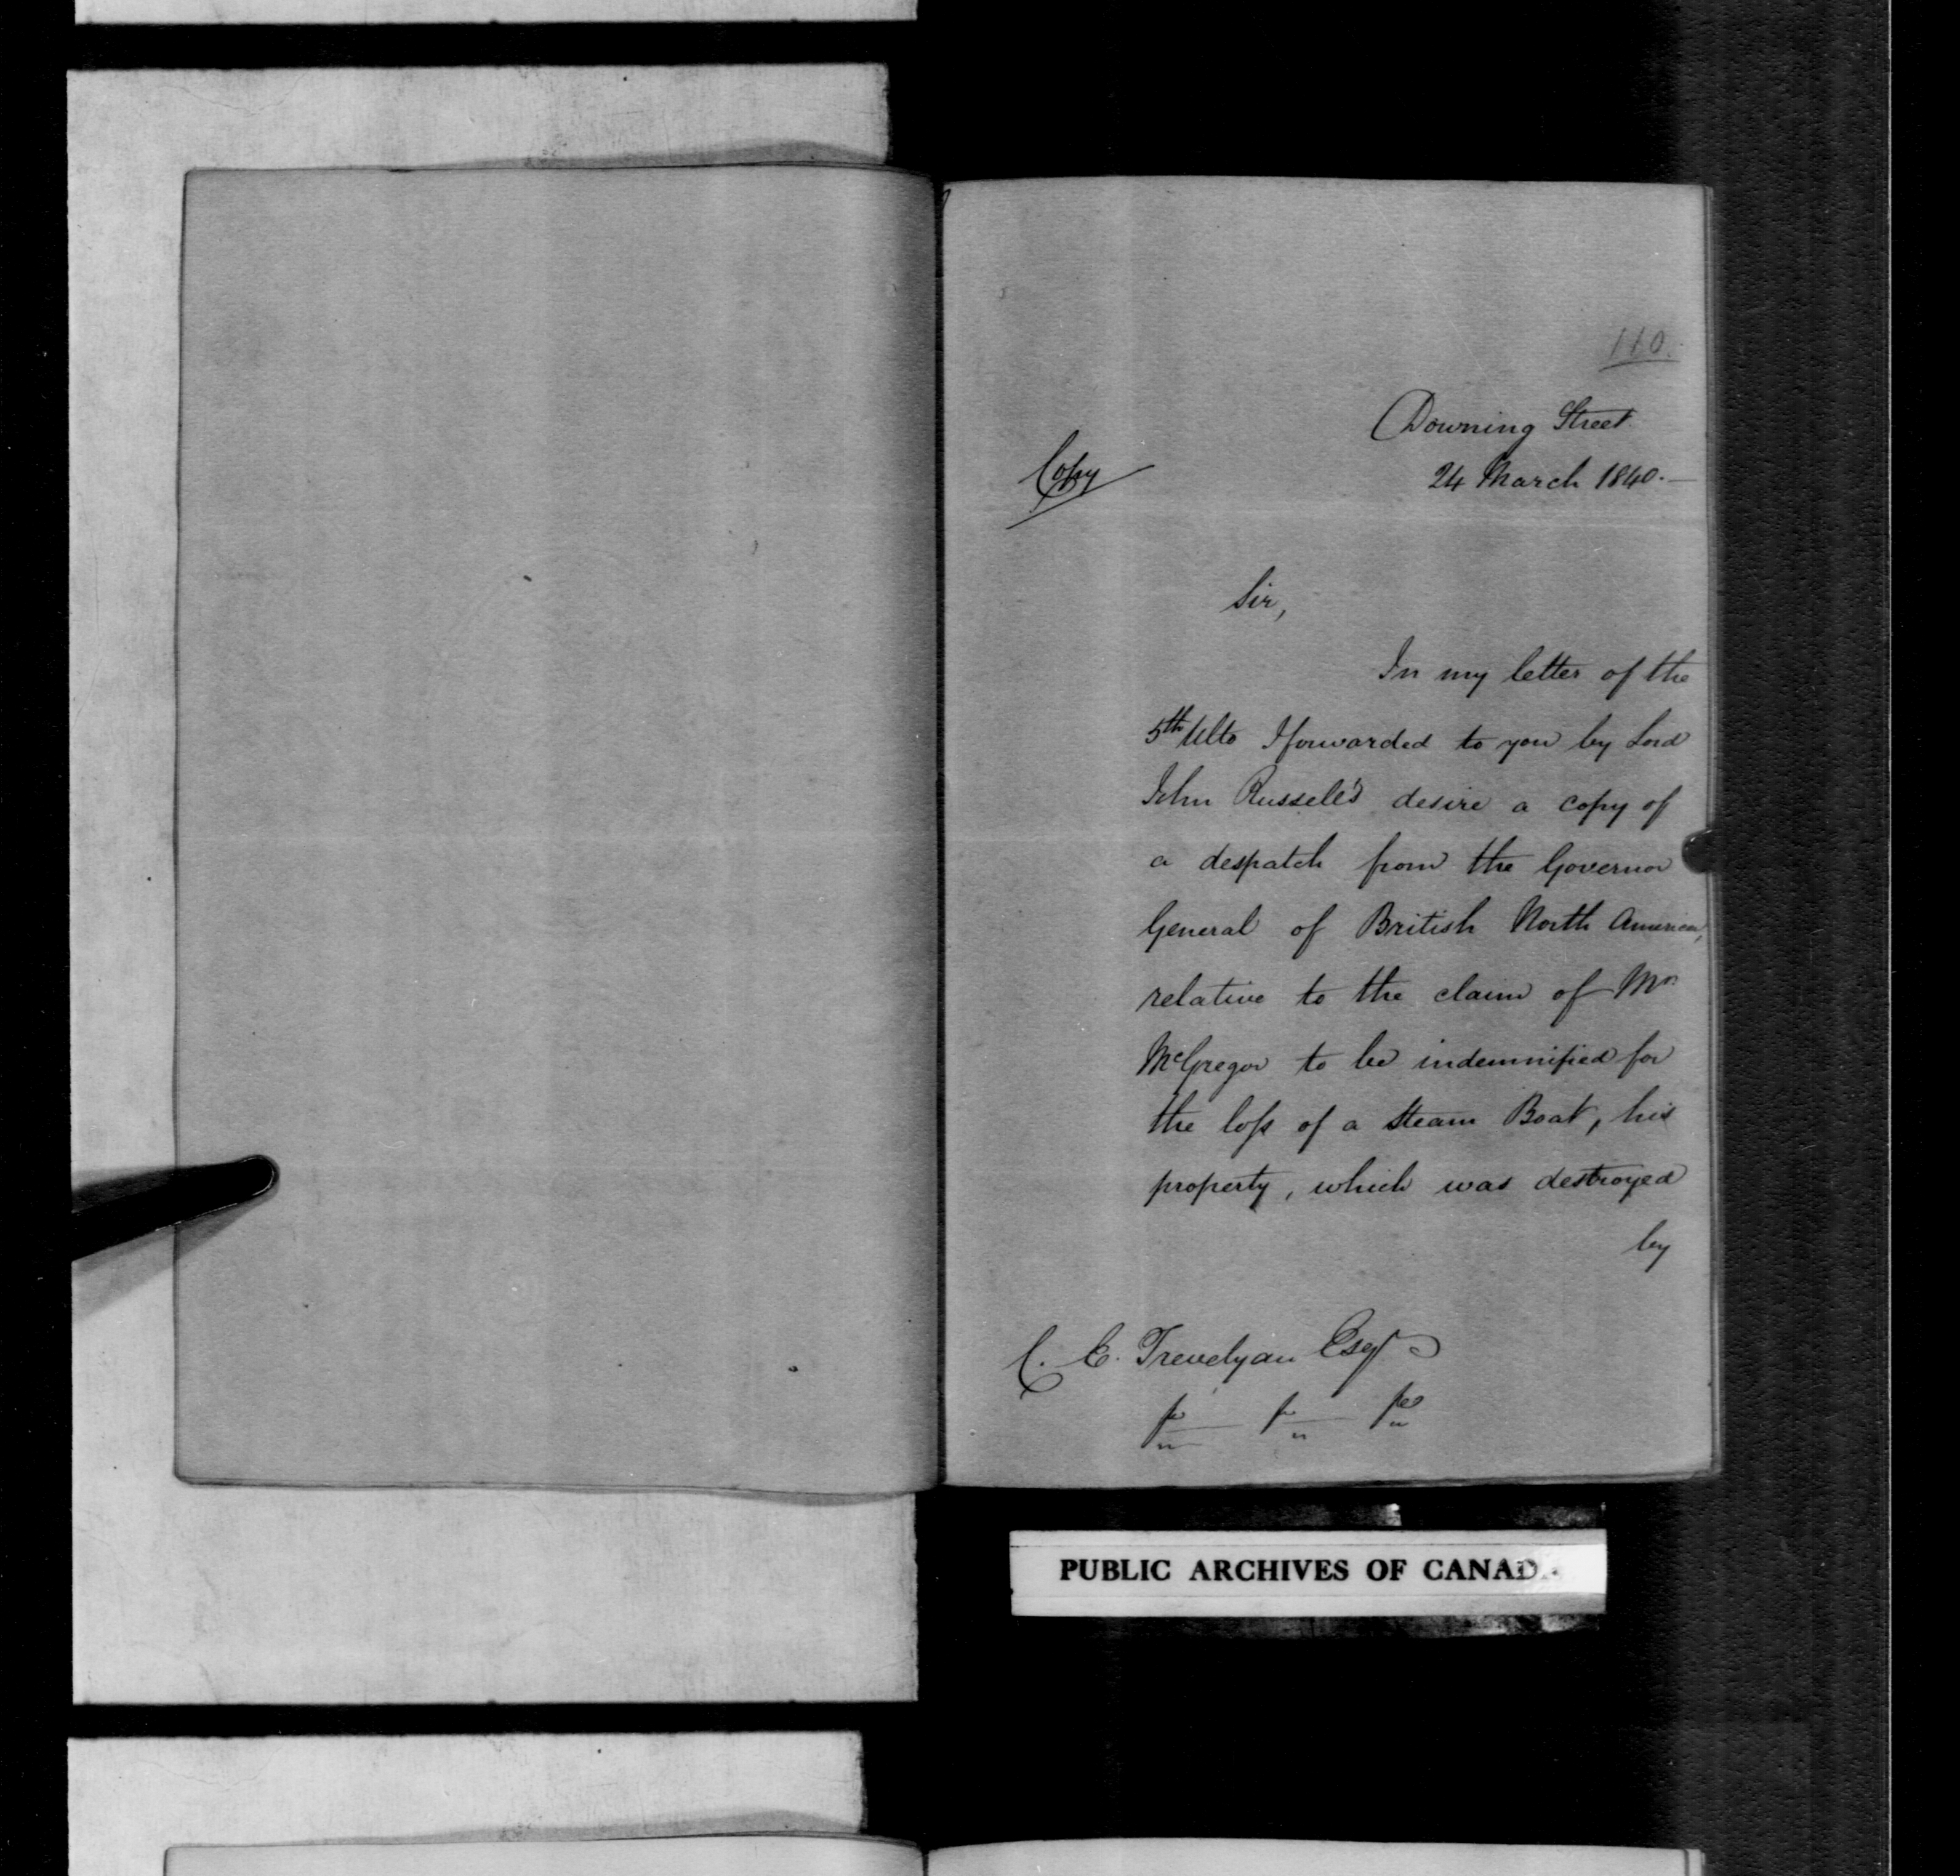 110.
Downing Street
Copy
24 March 1840.—
Sir,
In my letter of the
5th Ulto I forwarded to you by Lord
John Russell's desire a copy of
a despatch from the Governor
General of British North America,
relative to the claim of Mr
McGregor to be indemnified for
the loss of a Steam Boat, his
property, which was destroyed
by
C. E. Trevelyan Esqr
PUBLIC ARCHIVES OF CANAD